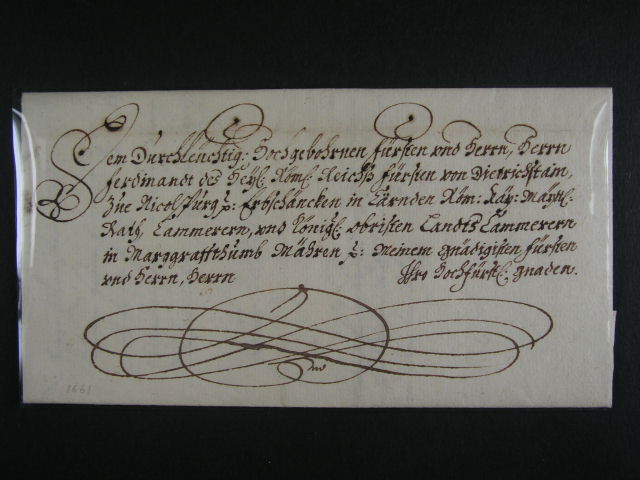 Dem Durchleuchtig: Hochgebohrnen Fürsten vnd Herrn, Herrn
Ferdinandt des Heyl: Röm: Reichß Fürsten von Dietrichstain,
Zue Nicolspurg p: Erbschäncken in Cärnden Röm: Kay: Mayst:
Rath, Cammerern, vnd Königl: obristen Landts Cammerern
in Marggraffthumb Mähren p: Meinem gnädigisten Fürsten
vnd Herrn, Herrn Ihro Hochfürstl: gnaden.
1661